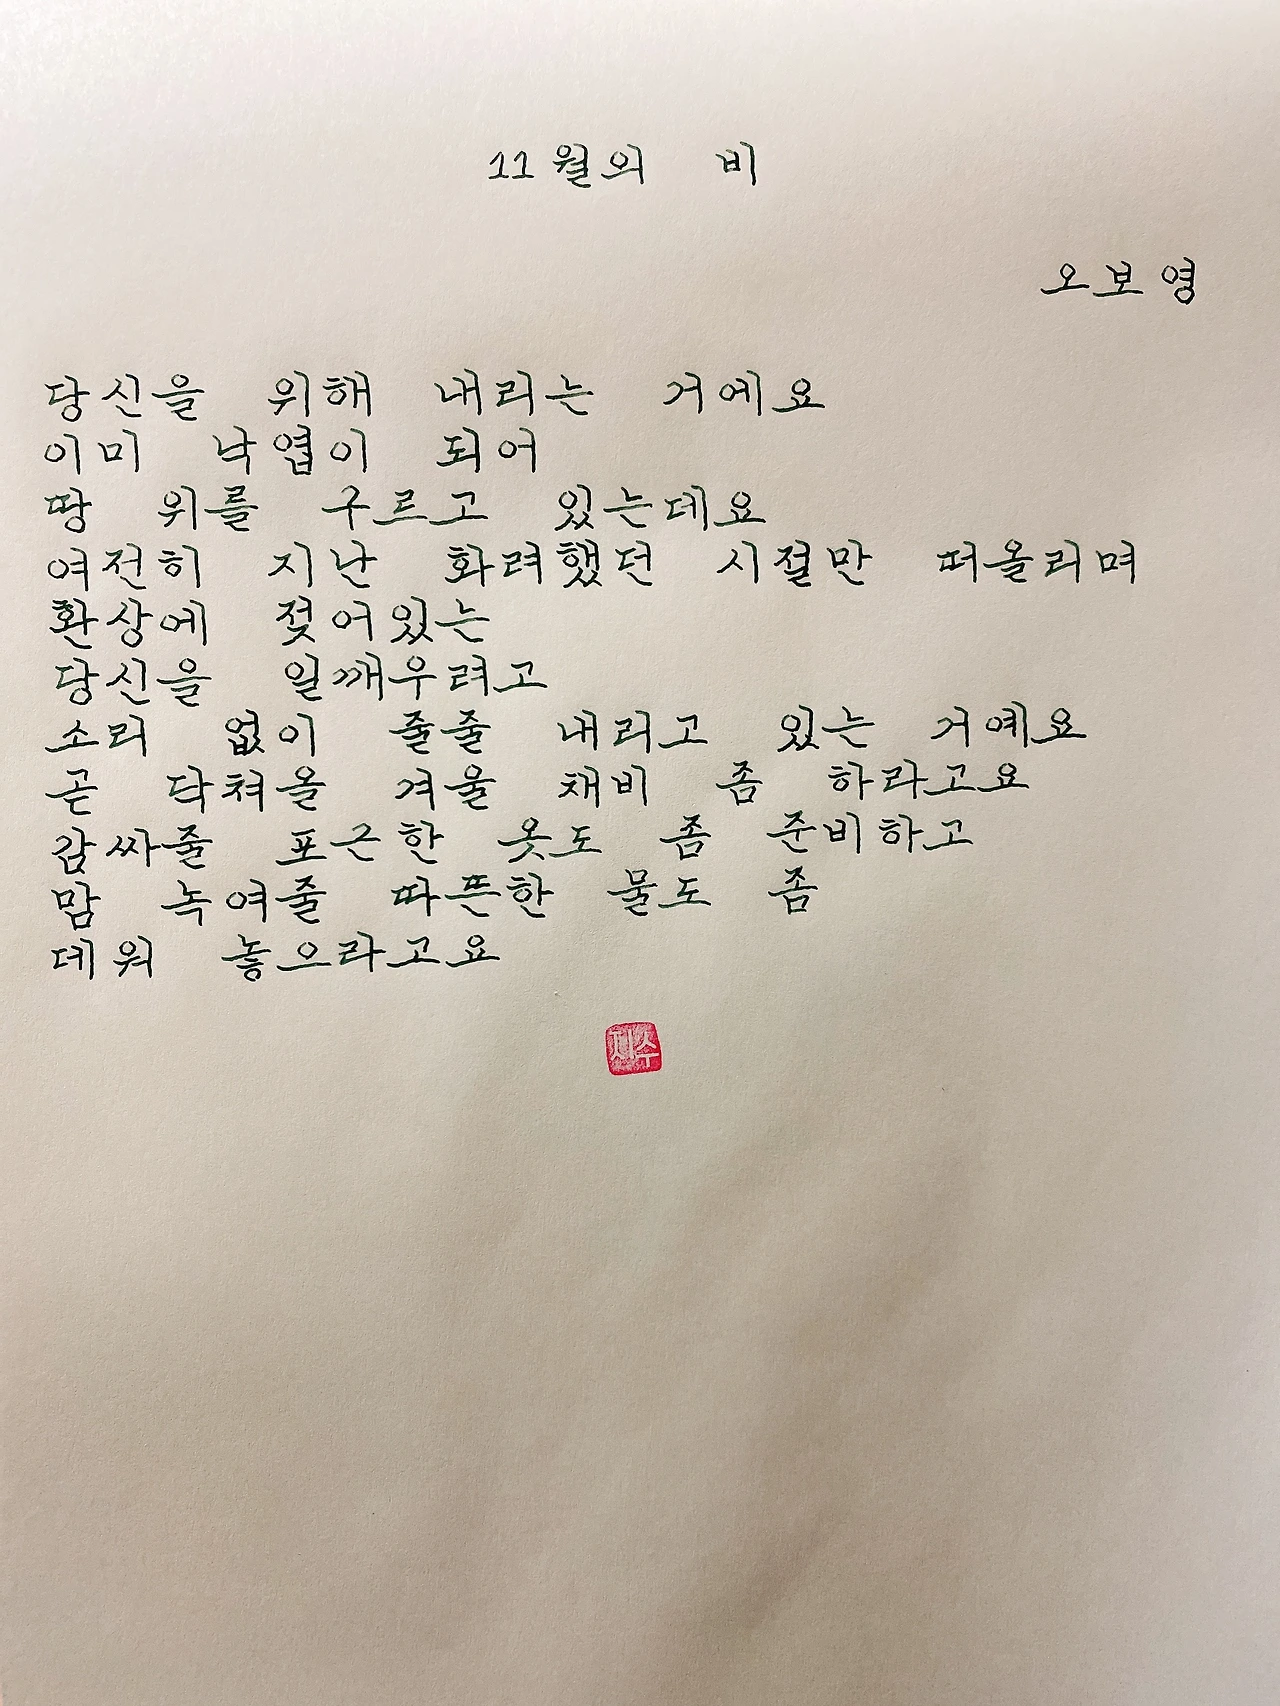 11월의 비
오보영
당신을 위해 내리는 거예요
이미 낙엽이 되어
땅 위를 구르고 있는데요
여전히 지난 화려했던 시절만 떠올리며
환상에 젖어있는
당신을 일깨우려고
소리 없이 줄줄 내리고 있는 거예요
곧 닥쳐올 겨울 채비 좀 하라고요
감싸줄 포근한 옷도 좀 준비하고
맘 녹여줄 따뜬한 물도 좀
데워 놓으라고요